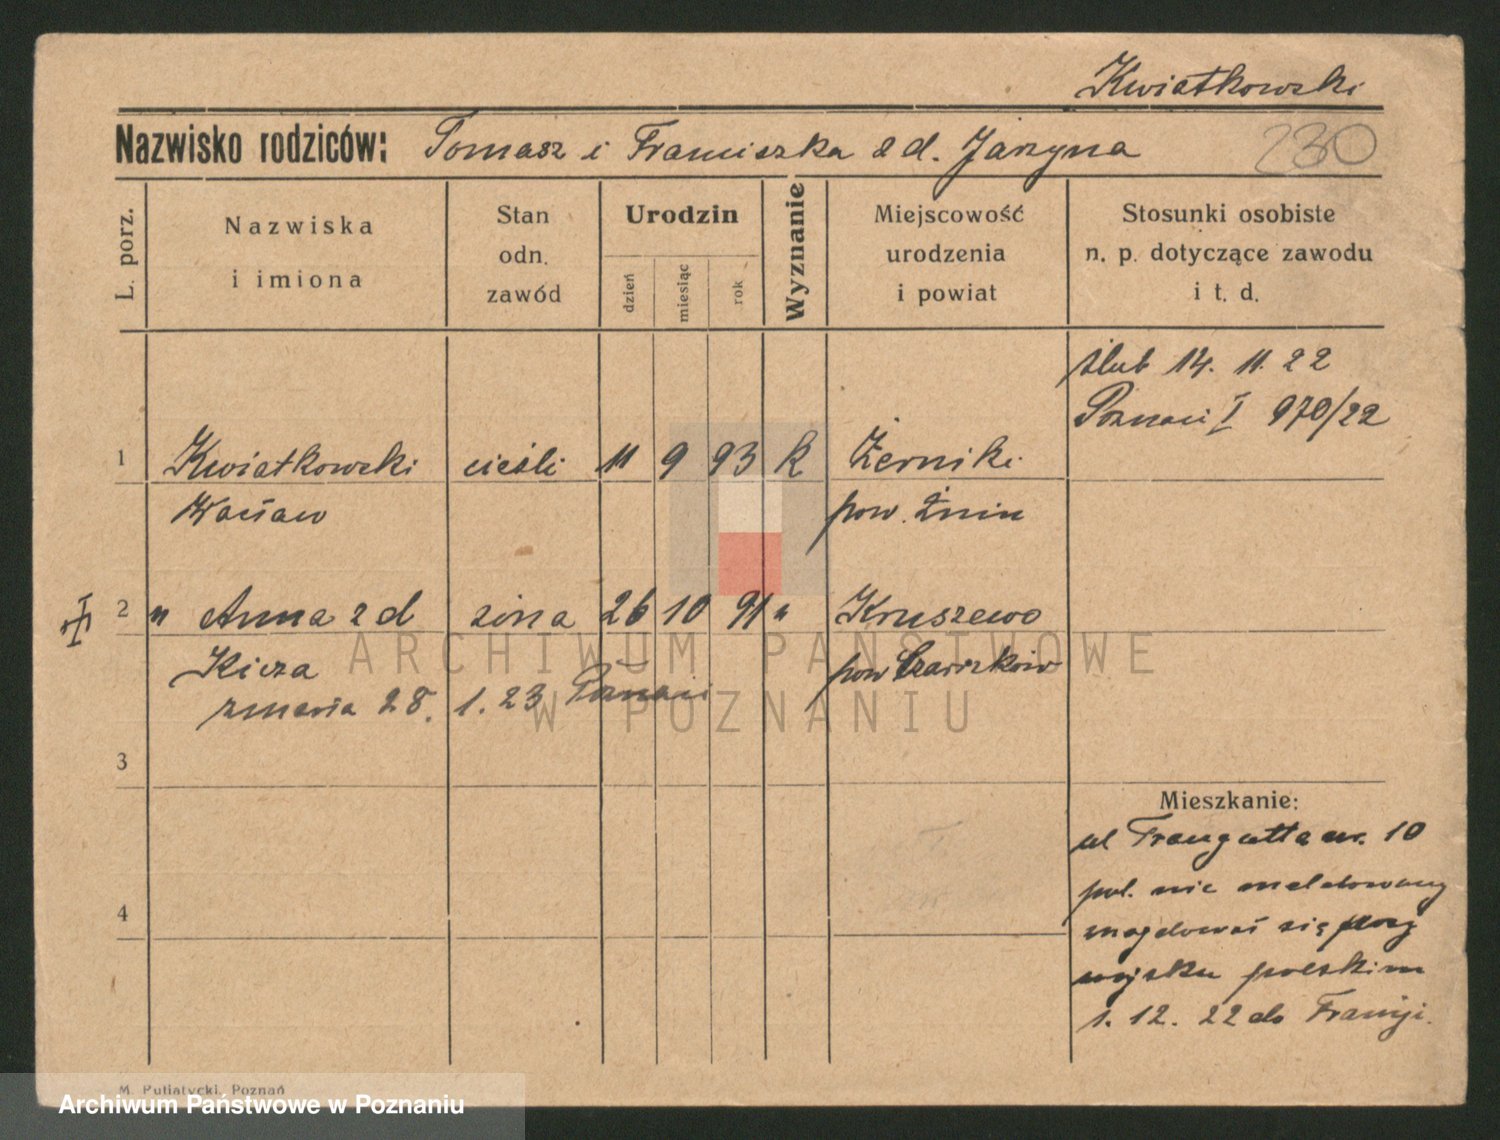 Kwiatkowski
Nazwisko rodziców: Tomasz i Franciszka z d. Jarzyna
230
L. porz.
Nazwiska i imiona
Stan odn. zawód
Urodzin
dzień
miesiąc
rok
Wyznanie
Miejscowość urodzenia i powiat
Stosunki osobiste n. p. dotyczące zawodu i t. d.
ślub 14. 11. 22
Poznań I 970/22
1 Kwiatkowski cieśli 11 9 93 k Żerniki
Wacław pow. Żnin
2 " Anna z d żona 26 10 91 " Kruszewo
Kicza pow Czarnków
zmarła 28. 1. 23 Poznań
3
Mieszkanie:
ul Traugutta nr. 10
pol. nie meldowany
znajdował się przy
wojsku polskim
1. 12. 22 do Francji.
4
M. Putiatycki, Poznań
ARCHIWUM PAŃSTWOWE
W POZNANIU
Archiwum Państwowe w Poznaniu